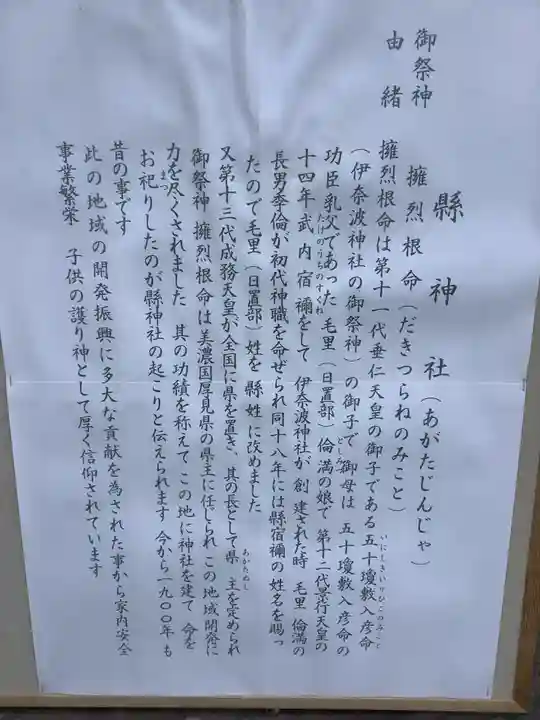 縣神社（あがたじんじゃ）
御祭神　擁烈根命（だきつらねのみこと）
由緒　擁烈根命は第十一代垂仁天皇の御子である五十瓊敷入彦命
（伊奈波神社の御祭神）の御子で御母は　五十瓊敷入彦命の
功臣乳父であった　毛里（日置部）倫満の娘で　第十二代景行天皇の
十四年武内宿禰をして　伊奈波神社が　創建された時　毛里倫満の
長男季倫が初代神職を命ぜられ同十八年には縣宿禰の姓名を賜っ
たので毛里（日置部）姓を縣姓に改めました
又第十三代成務天皇が全国に県を置き、其の長として県主を定められ
御祭神　擁烈根命は美濃国厚見県の県主に任じられ　この地域開発に
力を尽くされました　其の功績を称えて　この地に神社を建て　命を
お祀りしたのが縣神社の起こりと伝えられます　今から一九〇〇年も
昔の事です
此の地域の開発振興に多大な貢献を為された事から家内安全
事業繁栄　子供の護り神として厚く信仰されています
いにしきいりひこのみこと
たけのうちのすくね
あがたぬし
まつ